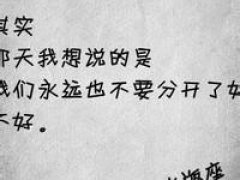 其实
那天我想说的是
我们永远也不要分开了好
不好。
座